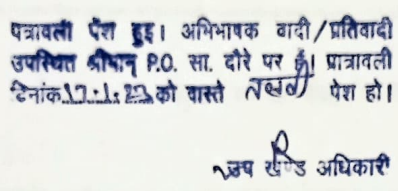 पत्रावली पेश हुइ। अभिभाषक वादी/प्रतिवादी
उपस्थित श्रीमान् P.O. सा. दौरे पर हैं। प्रात्रावली
दिनांक 17.1.23 को वास्ते तलबी पेश हो।
उप खण्ड अधिकारी